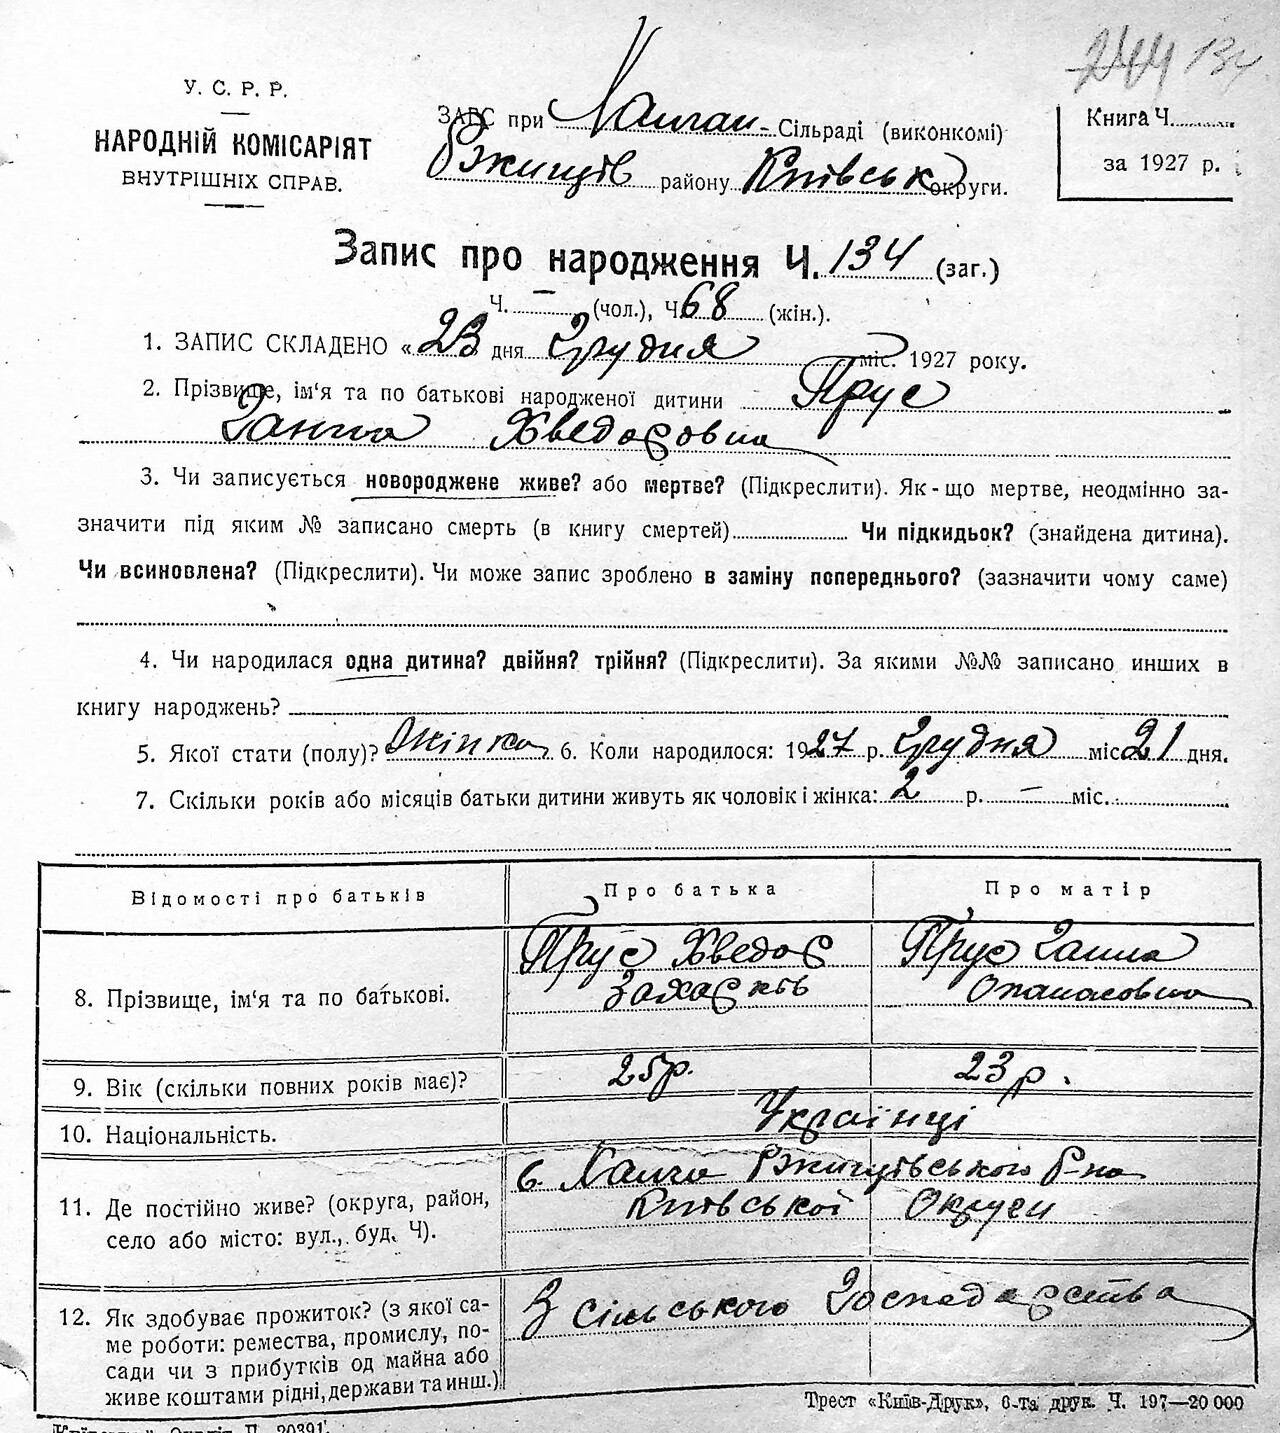 244 134
У. С. Р. Р.
НАРОДНІЙ КОМІСАРІЯТ
ВНУТРІШНІХ СПРАВ.
ЗАГС при Сільраді (виконкомі)
Ржищів району Київськ округи.
Книга Ч.
за 1927 р.
Запис про народження Ч. 134 (заг.)
Ч. — (чол.), Ч 68 (жін.).
1. ЗАПИС СКЛАДЕНО « 23 дня Грудня міс. 1927 року.
2. Прізвище, ім‘я та по батькові народженої дитини Прус
Ганна Хведоровна
3. Чи записується новороджене живе? або мертве? (Підкреслити). Як-що мертве, неодмінно за-
значити під яким № записано смерть (в книгу смертей) Чи підкидьок? (знайдена дитина).
Чи всиновлена? (Підкреслити). Чи може запис зроблено в заміну попереднього? (зазначити чому саме)
4. Чи народилася одна дитина? двійня? трійня? (Підкреслити). За якими №№ записано инших в
книгу народжень?
5. Якої стати (полу)? Жінка 6. Коли народилося: 1927 р. Грудня міс 21 дня.
7. Скільки років або місяців батьки дитини живуть як чоловік і жінка: 2 р. — міс.
Відомості про батьків Про батька Про матір
8. Прізвище, ім‘я та по батькові. Прус Хведор Прус Ганна
Захарків Опанасовна
9. Вік (скільки повних років має)? 25р. 23 р.
10. Національність. Українці
11. Де постійно живе? (округа, район,
село або місто: вул., буд. Ч).
с. Ржищівського Р-на
Київської Округи
12. Як здобуває прожиток? (з якої са-
ме роботи: ремества, промислу, по-
сади чи з прибутків од майна або
живе коштами рідні, держави та инш.)
З сільського Господарства
Трест «Київ-Друк», 6-та друк. Ч. 197—20 000
Л. 20391.